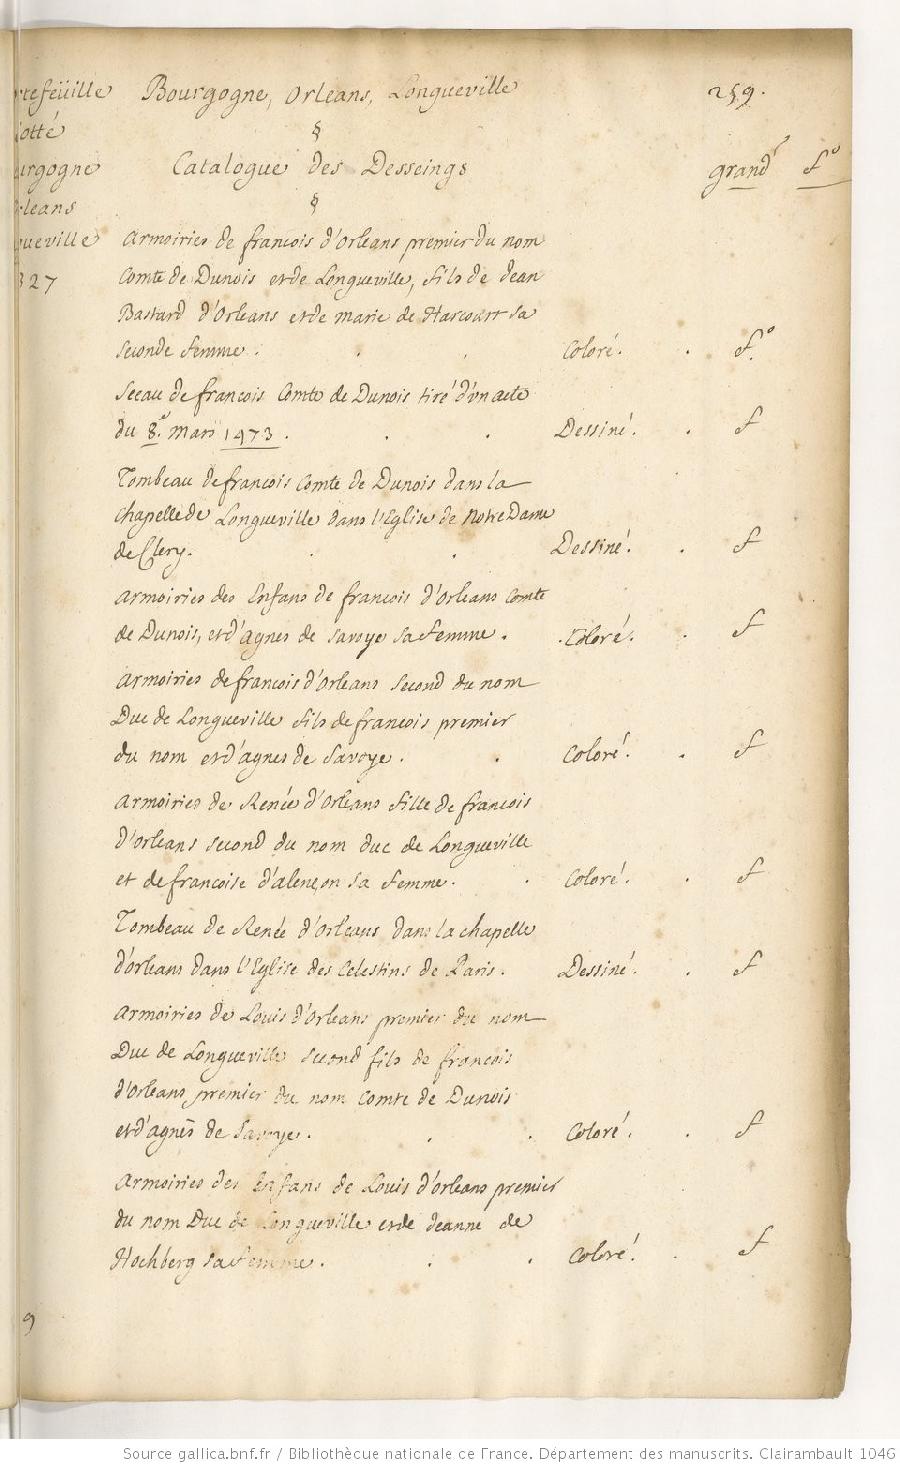 Bourgogne, Orleans, Longueville 259.
§
Catalogue des Desseings grand fo
§
327
armoiries de francois d'Orleans premier du nom
Comte de Dunois et de Longueville, fils de Jean
Bastard d'Orleans et de marie de Harcourt sa
seconde femme. Coloré. fo.
Sceau de francois Comte de Dunois tiré d'un acte
du 8e. Mars 1473. Dessiné. f
Tombeau de francois Comte de Dunois dans la
chapelle de Longueville dans l'Eglise de Notre Dame
de Clery. Dessiné. f
armoiries des Enfans de francois d'Orleans Comte
de Dunois, et d'Agnes de Savoye sa femme. Coloré. f
armoiries de francois d'Orleans second du nom
Duc de Longueville fils de francois premier
du nom et d'agnes de Savoye. Coloré. f
armoiries de Renée d'Orleans fille de francois
d'Orleans second du nom duc de Longueville
et de francoise d'alençon sa femme. Coloré. f
Tombeau de Renée d'Orleans dans la chapelle
d'orleans dans l'Eglise des Celestins de Paris. Dessiné. f
armoiries de Louis d'Orleans premier du nom
Duc de Longueville second fils de francois
d'Orleans, premier du nom Comte de Dunois
et d'agnès de Savoye. Coloré. f
armoiries des Enfans de Louis d'orleans premier
du nom Duc de Longueville et de Jeanne de
Hochberg sa femme. Coloré. f
9
Source gallica.bnf.fr / Bibliothèque nationale de France. Département des manuscrits. Clairambault 1046